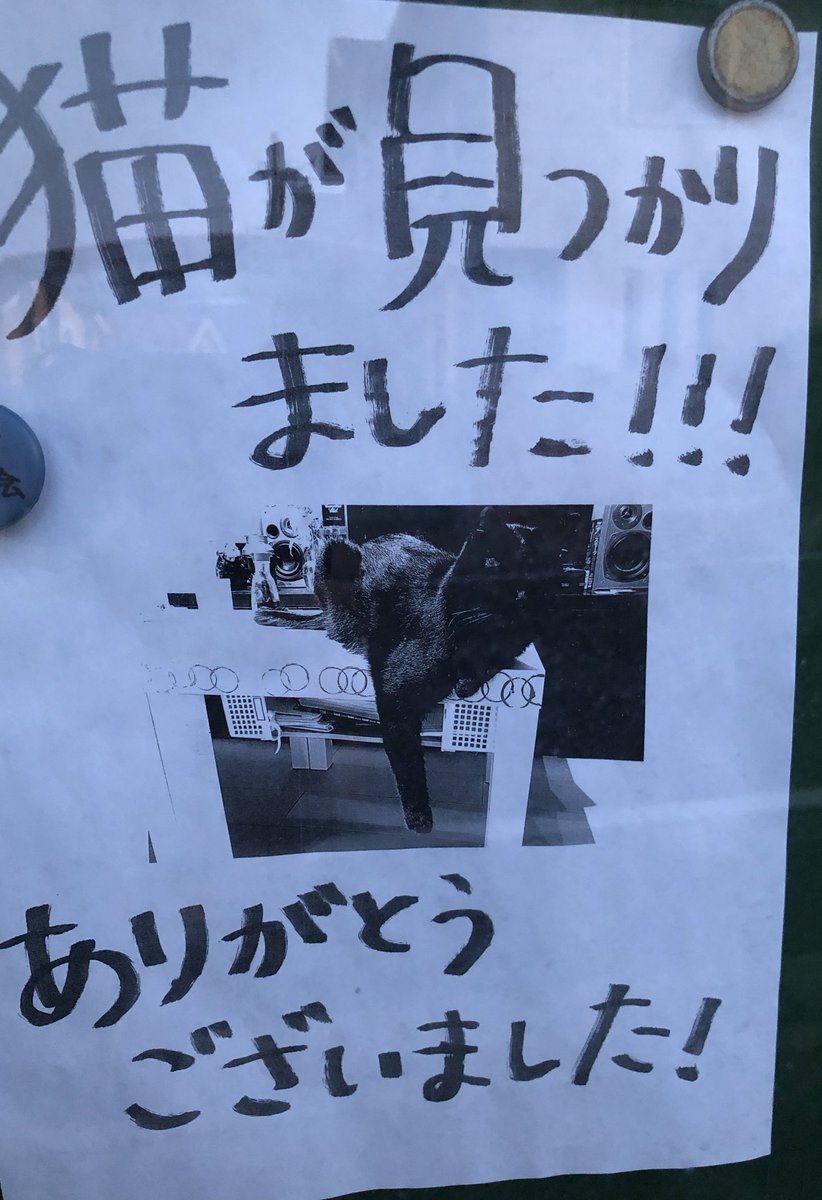 猫が見つかり
ました!!!
ありがとう
ございました!